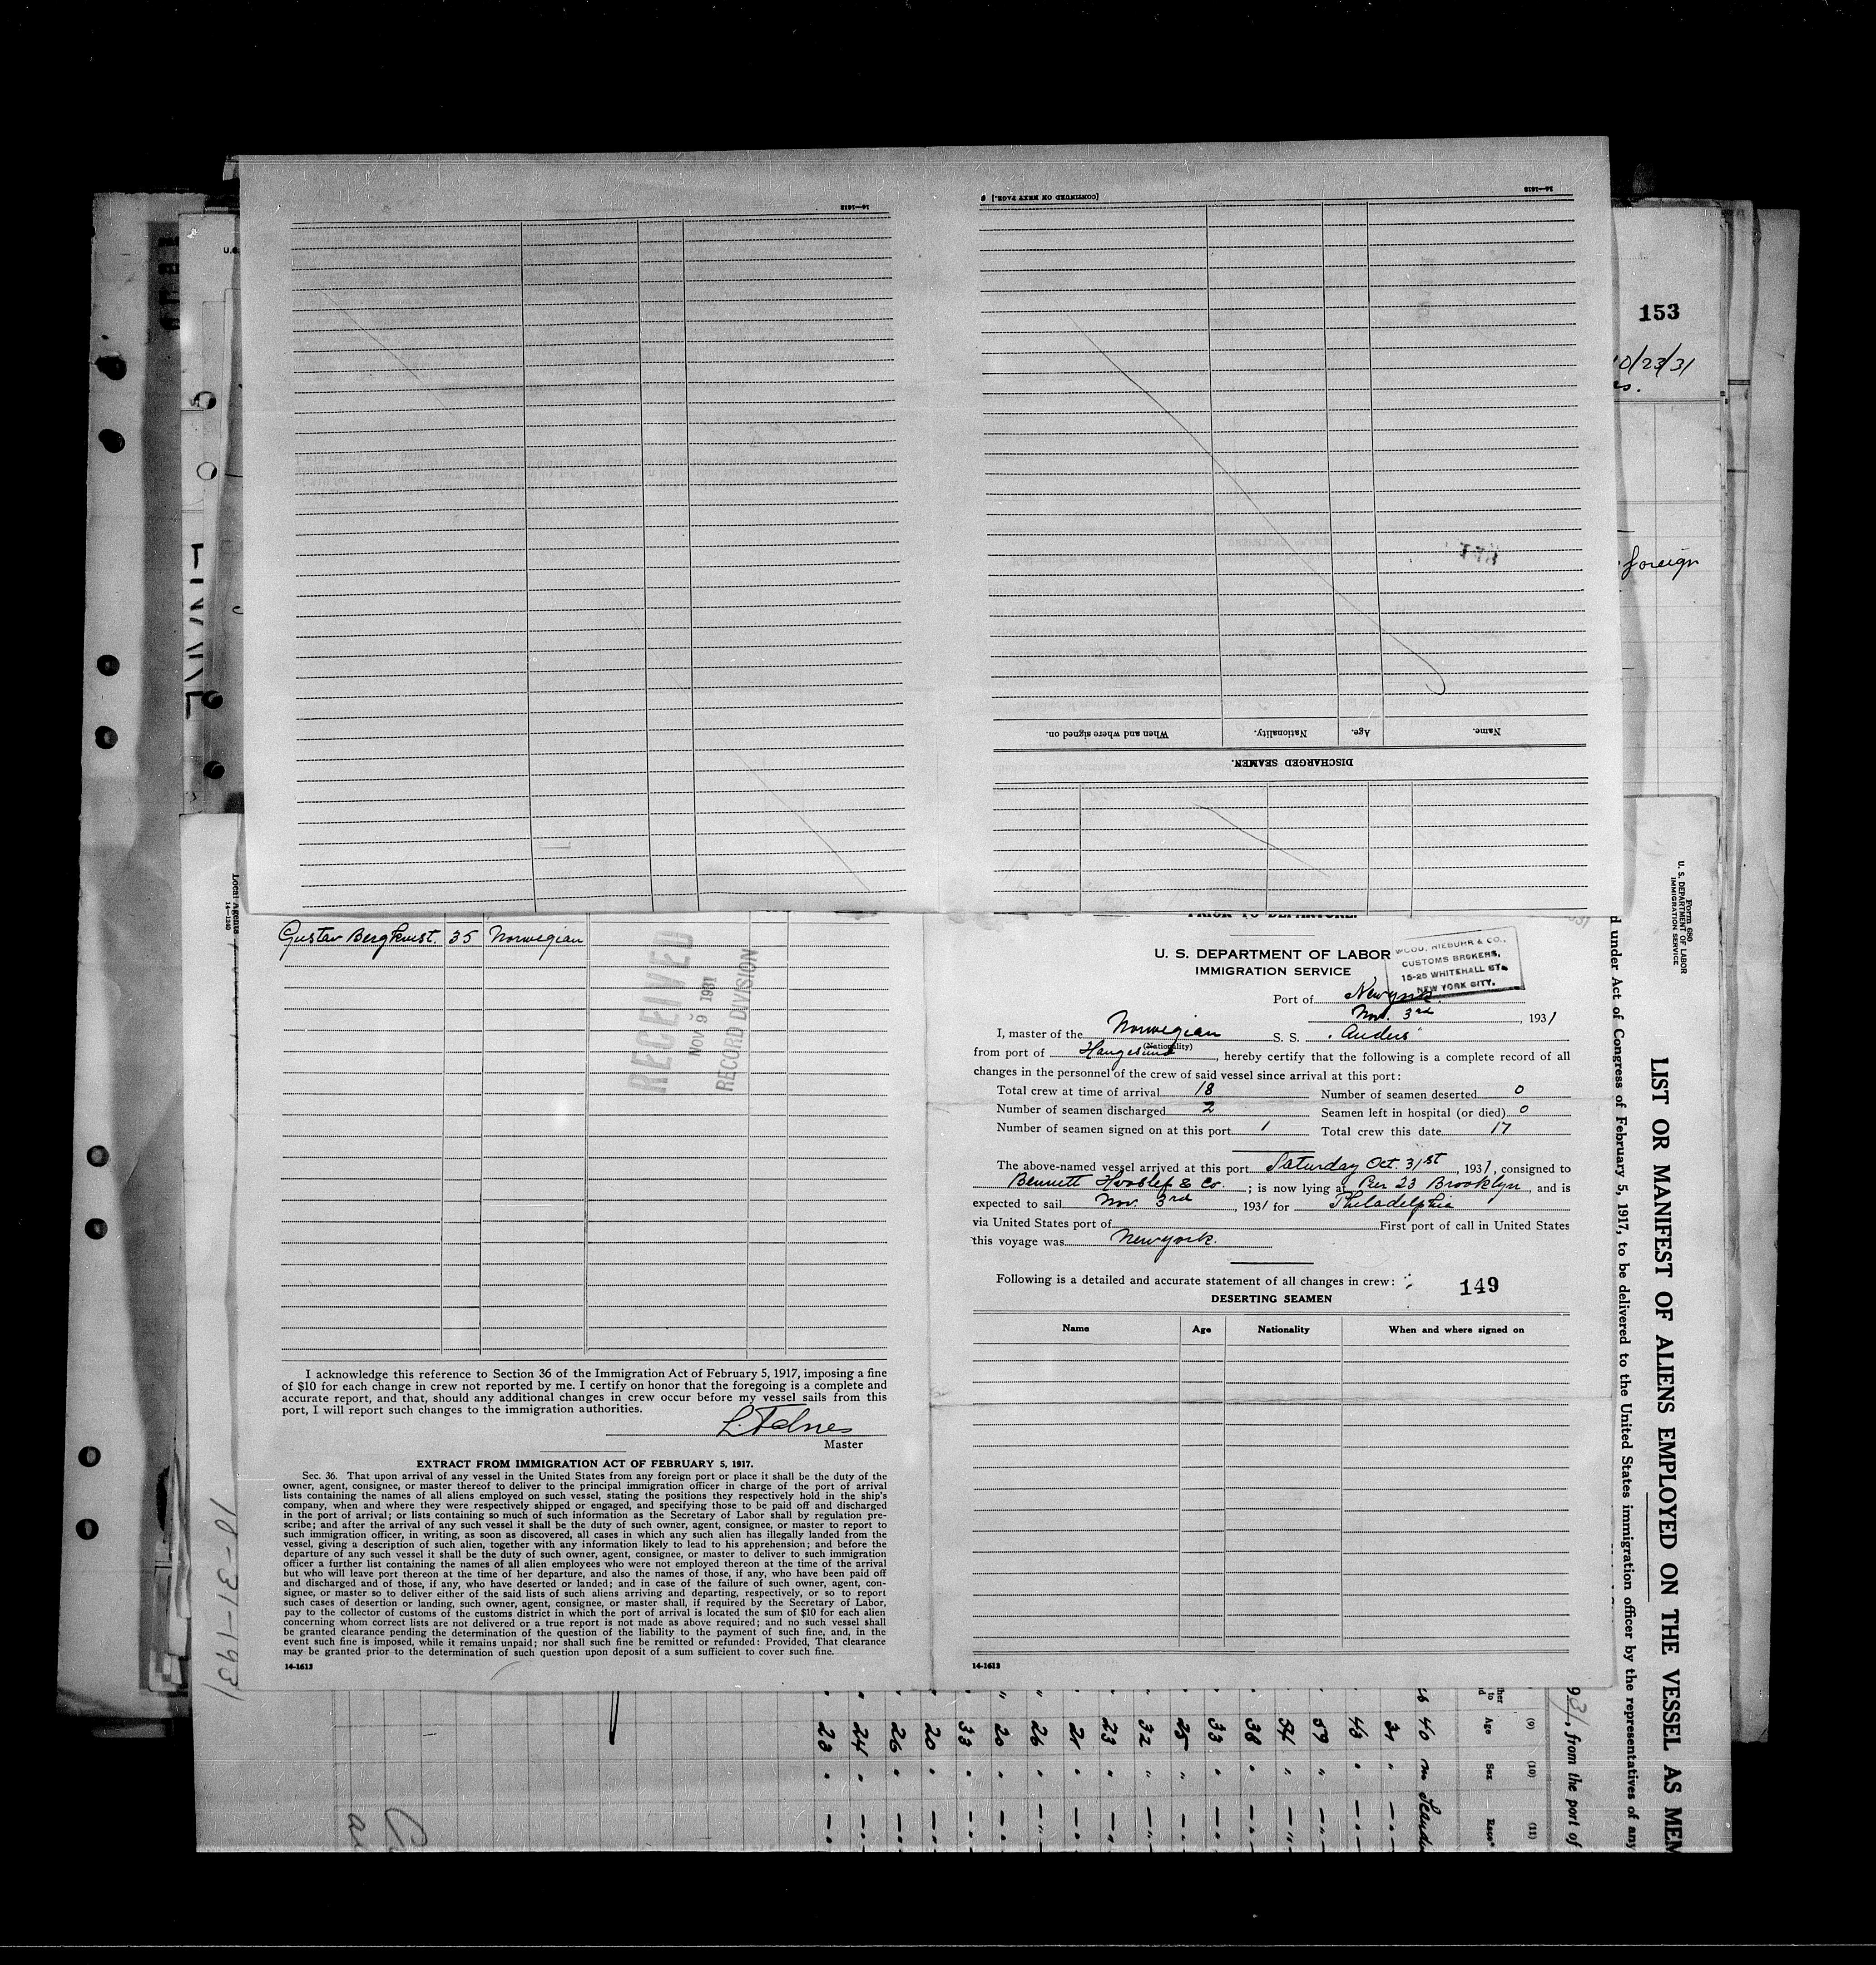 14-1613
14-1613
[CONTINUED ON NEXT PAGE.]
When and where signed on.
Nationality.
Age.
Name.
DISCHARGED SEAMEN.
153
10/23/31
foreign
Local Agents
14-1240
Gustav Bergkvist. 35 Norwegian
RECEIVED
NOV 9 1931
RECORD DIVISION
I acknowledge this reference to Section 36 of the Immigration Act of February 5, 1917, imposing a fine
of $10 for each change in crew not reported by me. I certify on honor that the foregoing is a complete and
accurate report, and that, should any additional changes in crew occur before my vessel sails from this
port, I will report such changes to the immigration authorities.
Master
EXTRACT FROM IMMIGRATION ACT OF FEBRUARY 5, 1917.
Sec. 36. That upon arrival of any vessel in the United States from any foreign port or place it shall be the duty of the
owner, agent, consignee, or master thereof to deliver to the principal immigration officer in charge of the port of arrival
lists containing the names of all aliens employed on such vessel, stating the positions they respectively hold in the ship's
company, when and where they were respectively shipped or engaged, and specifying those to be paid off and discharged
in the port of arrival; or lists containing so much of such information as the Secretary of Labor shall by regulation pre-
scribe; and after the arrival of any such vessel it shall be the duty of such owner, agent, consignee, or master to report to
such immigration officer, in writing, as soon as discovered, all cases in which any such alien has illegally landed from the
vessel, giving a description of such alien, together with any information likely to lead to his apprehension; and before the
departure of any such vessel it shall be the duty of such owner, agent, consignee, or master to deliver to such immigration
officer a further list containing the names of all alien employees who were not employed thereon at the time of the arrival
but who will leave port thereon at the time of her departure, and also the names of those, if any, who have been paid off
and discharged and of those, if any, who have deserted or landed; and in case of the failure of such owner, agent, con-
signee, or master so to deliver either of the said lists of such aliens arriving and departing, respectively, or so to report
such cases of desertion or landing, such owner, agent, consignee, or master shall, if required by the Secretary of Labor,
pay to the collector of customs of the customs district in which the port of arrival is located the sum of $10 for each alien
concerning whom correct lists are not delivered or a true report is not made as above required; and no such vessel shall
be granted clearance pending the determination of the question of the liability to the payment of such fine, and, in the
event such fine is imposed, while it remains unpaid; nor shall such fine be remitted or refunded: Provided, That clearance
may be granted prior to the determination of such question upon deposit of a sum sufficient to cover such fine.
14-1613
10-31-1931
PRIOR TO DEPARTURE.
U. S. DEPARTMENT OF LABOR
IMMIGRATION SERVICE
WOOD, NIEBUHR & CO.,
CUSTOMS BROKERS,
15-25 WHITEHALL ST.
NEW YORK CITY.
Port of New york.
Nov. 3rd, 1931
I, master of the Norwegian S. S. "Anders"
(Nationality)
from port of Haugesund, hereby certify that the following is a complete record of all
changes in the personnel of the crew of said vessel since arrival at this port:
Total crew at time of arrival 18 Number of seamen deserted 0
Number of seamen discharged 2 Seamen left in hospital (or died) 0
Number of seamen signed on at this port 1 Total crew this date 17
The above-named vessel arrived at this port Saturday Oct. 31st, 1931, consigned to
Bennett Hvoslef & Co.; is now lying at Pier 23 Brooklyn, and is
expected to sail Nov. 3rd, 1931 for Philadelphia
via United States port of First port of call in United States
this voyage was New york.
Following is a detailed and accurate statement of all changes in crew:
149
DESERTING SEAMEN
Name Age Nationality When and where signed on
14-1613
Form 680
U. S. DEPARTMENT OF LABOR
IMMIGRATION SERVICE
LIST OR MANIFEST OF ALIENS EMPLOYED ON THE VESSEL AS MEM
under Act of Congress of February 5, 1917, to be delivered to the United States immigration officer by the representatives of any
931, from the port of
(9) (10) (11)
Age Sex Race*
40 m Scandi
31
43
59
54
38
33
25
32
23
21
26
20
33
20
26
24
23